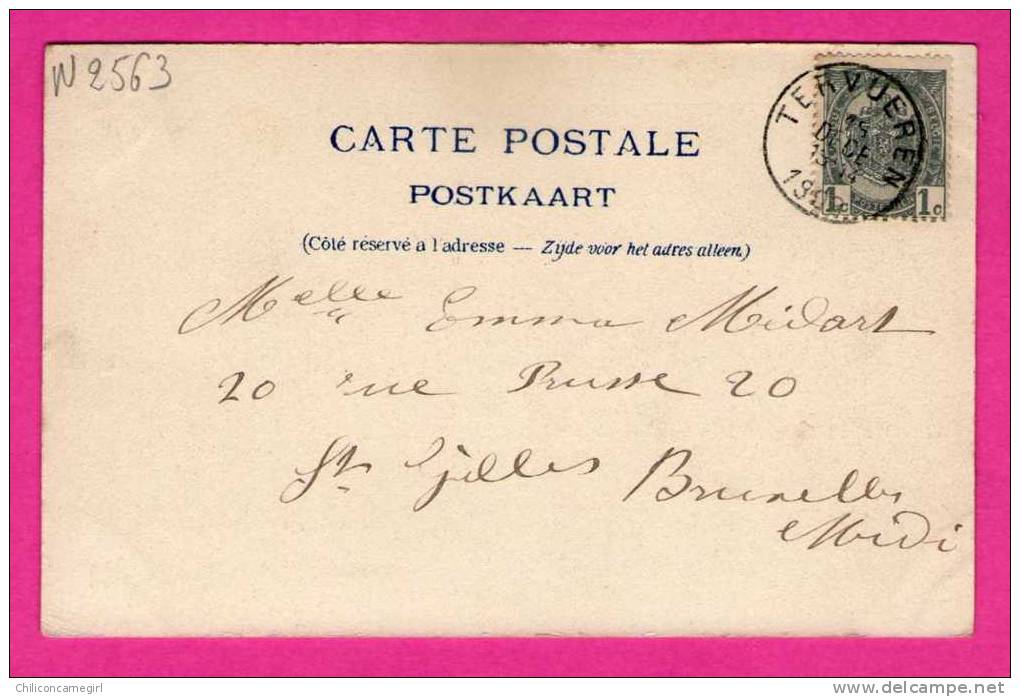 N 2563
CARTE POSTALE
POSTKAART
(Côté réservé a l'adresse — Zijde voor het adres alleen.)
TERVUEREN
15
DECE
13-14
1c 1c
Melle Emma Midart
20 rue Prusse 20
St Gilles Bruxelles
Midi
Chiliconcamegirl
www.delcampe.net